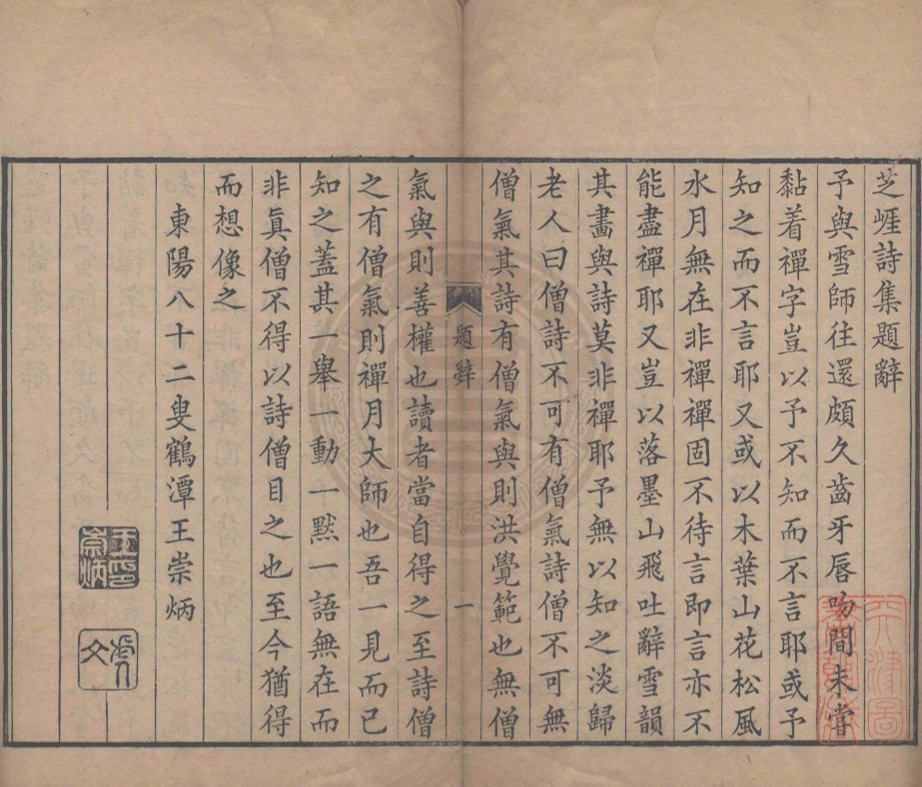 芝崕詩集題辭
予與雪師往還頗久齒牙唇吻間未嘗
黏着禪字豈以予不知而不言耶或予
知之而不言耶又或以木葉山花松風
水月無在非禪禪固不待言即言亦不
能盡禪耶又豈以落墨山飛吐辭雪韻
其畫與詩莫非禪耶予無以知之淡歸
老人曰僧詩不可有僧氣詩僧不可無
僧氣其詩有僧氣與則洪覺範也無僧
題辭
一
氣與則善權也讀者當自得之至詩僧
之有僧氣則禪月大師也吾一見而已
知之蓋其一舉一動一默一語無在而
非真僧不得以詩僧目之也至今猶得
而想像之
東陽八十二叟鶴潭王崇炳
王崇炳印
虎文